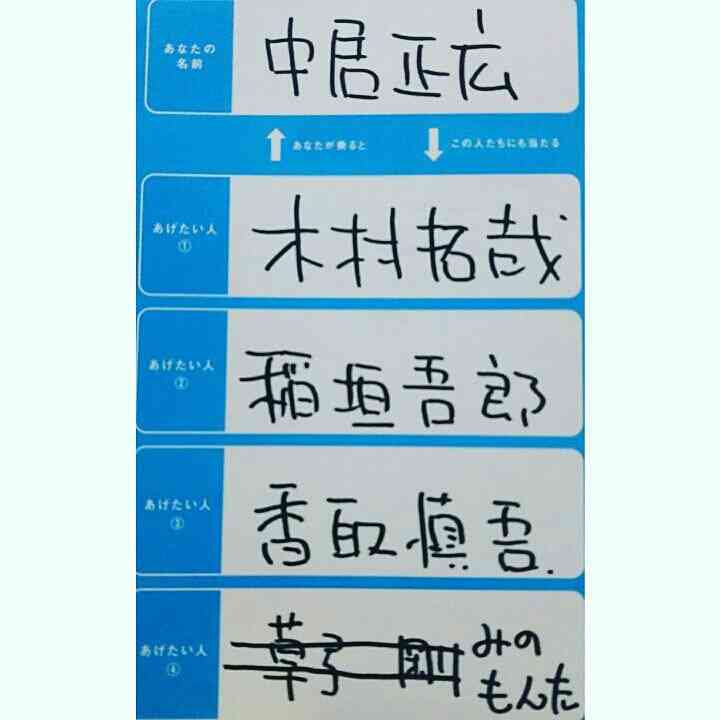 あなたの
名前
中居正広
あなたが乗ると
この人たちにも当たる
あげたい人
①
木村拓哉
あげたい人
②
稲垣吾郎
あげたい人
③
香取慎吾.
あげたい人
④
草彅剛
みの
もんた